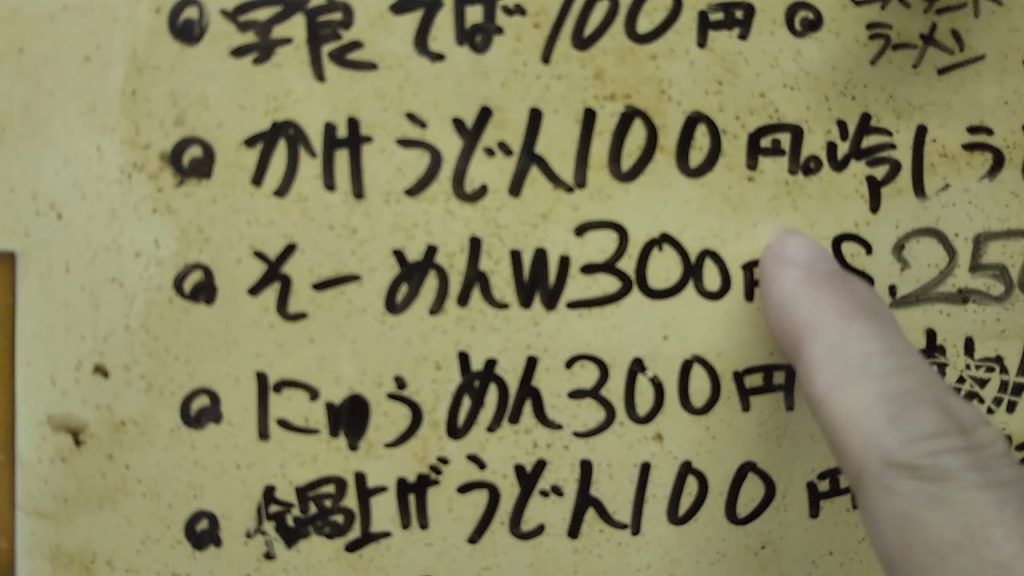 そば100円
ラーメン
かけうどん100円。冷しう
そーめんW300円 S.25
にゅうめん300円
鍋上げうどん100円